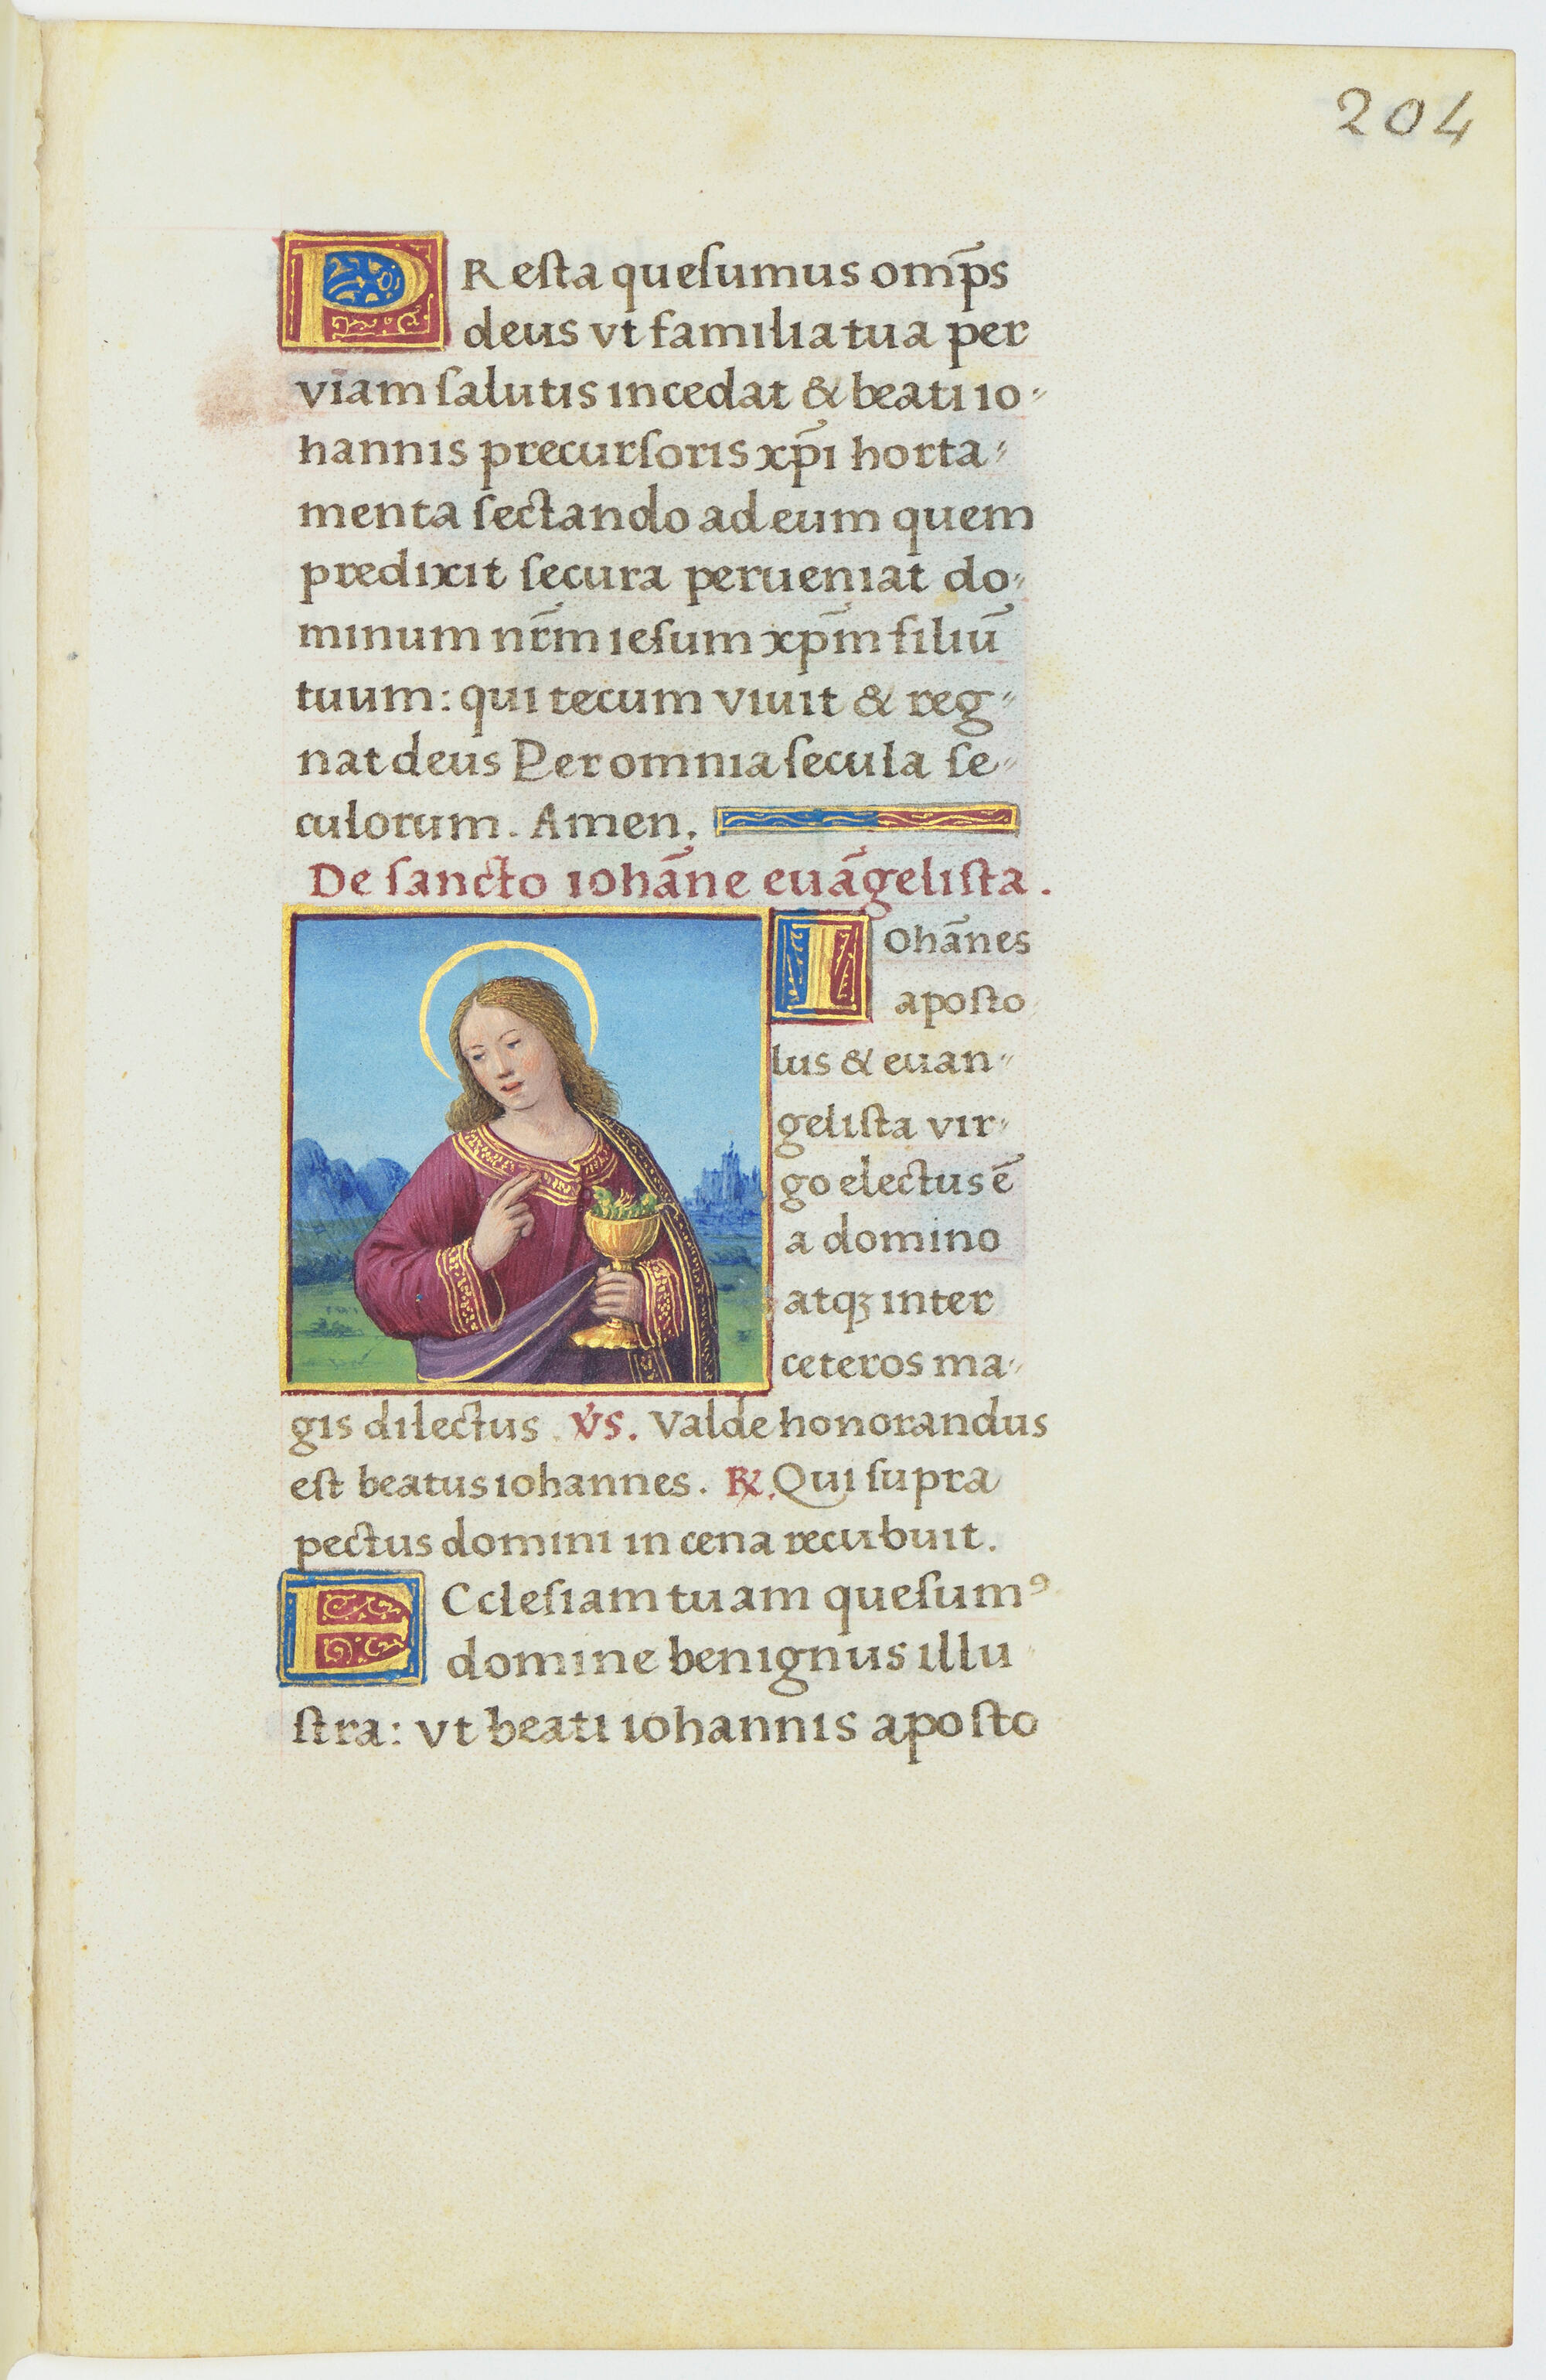 204
PR esta quesumus om̅ps
deus vt familia tua per
viam salutis incedat & beati io-
hannis precursoris xp̅i horta-
menta sectando ad eum quem
predixit secura perueniat do-
minum nr̅m iesum xp̅m filiū
tuum: qui tecum viuit & reg-
nat deus Per omnia secula se-
culorum. Amen.
De sancto iohāne euāgelista.
IOhānes
aposto
lus & euan-
gelista vir-
go electus ē
a domino
atqꝫ inter
ceteros ma-
gis dilectus. v̇s. Valde honorandus
est beatus iohannes. ℞. Qui supra
pectus domini in cena recubuit.
ECclesiam tuam quesumꝰ
domine benignus illu
stra: vt beati iohannis aposto